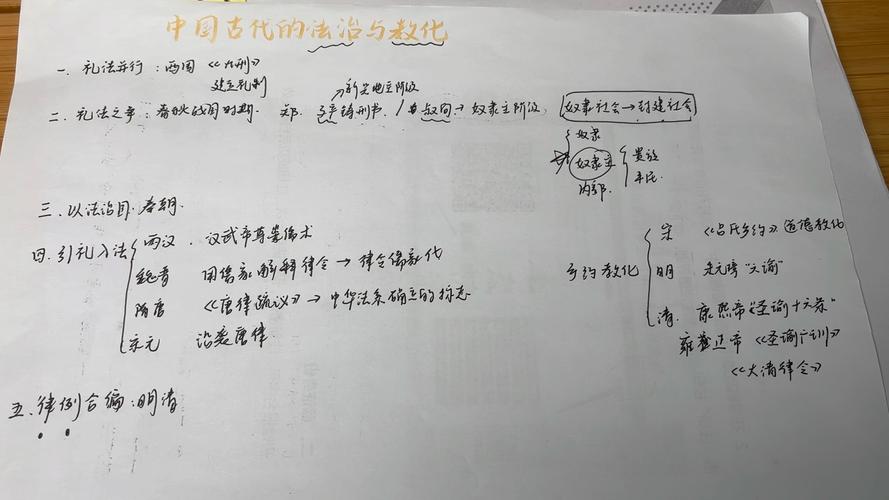 中国古代的法治与教化
一、礼法并行：西周《九刑》
建立礼制
→新兴地主阶级
二、礼法之争：春秋战国时期. 郑. 子产铸刑书. / 叔向→奴隶主阶级. 奴隶社会→封建社会
奴隶
奴隶主 { 贵族
内部. 平民.
三. 以法治国. 秦朝.
四. 引礼入法 { 西汉. 汉武帝尊崇儒术
魏晋 用儒家解释律令→律令儒家化
隋唐 《唐律疏议》→中华法系确立的标志
宋元 沿袭唐律.
乡约教化 { 宋 《吕氏乡约》道德教化
明 朱元璋"六谕"
清. 康熙帝"圣谕十六条"
雍正帝《圣谕广训》
《大清律令》
五. 律例合编：明清